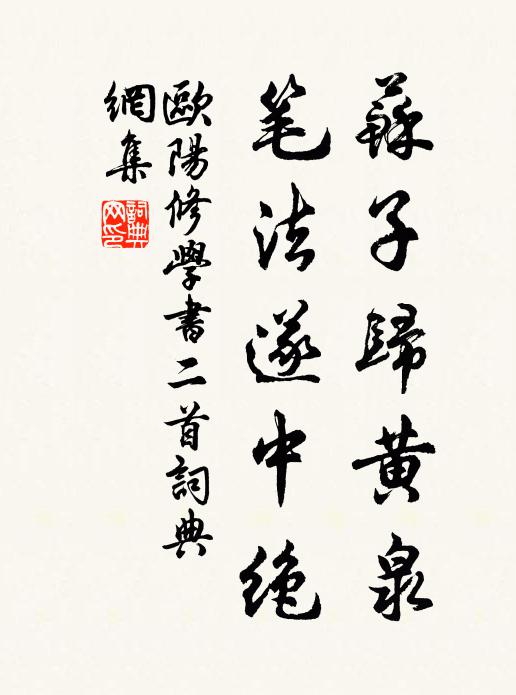 蘇子歸黄泉
笔法遂中绝
歐陽修學書二首詞典
網集
詞典
网印